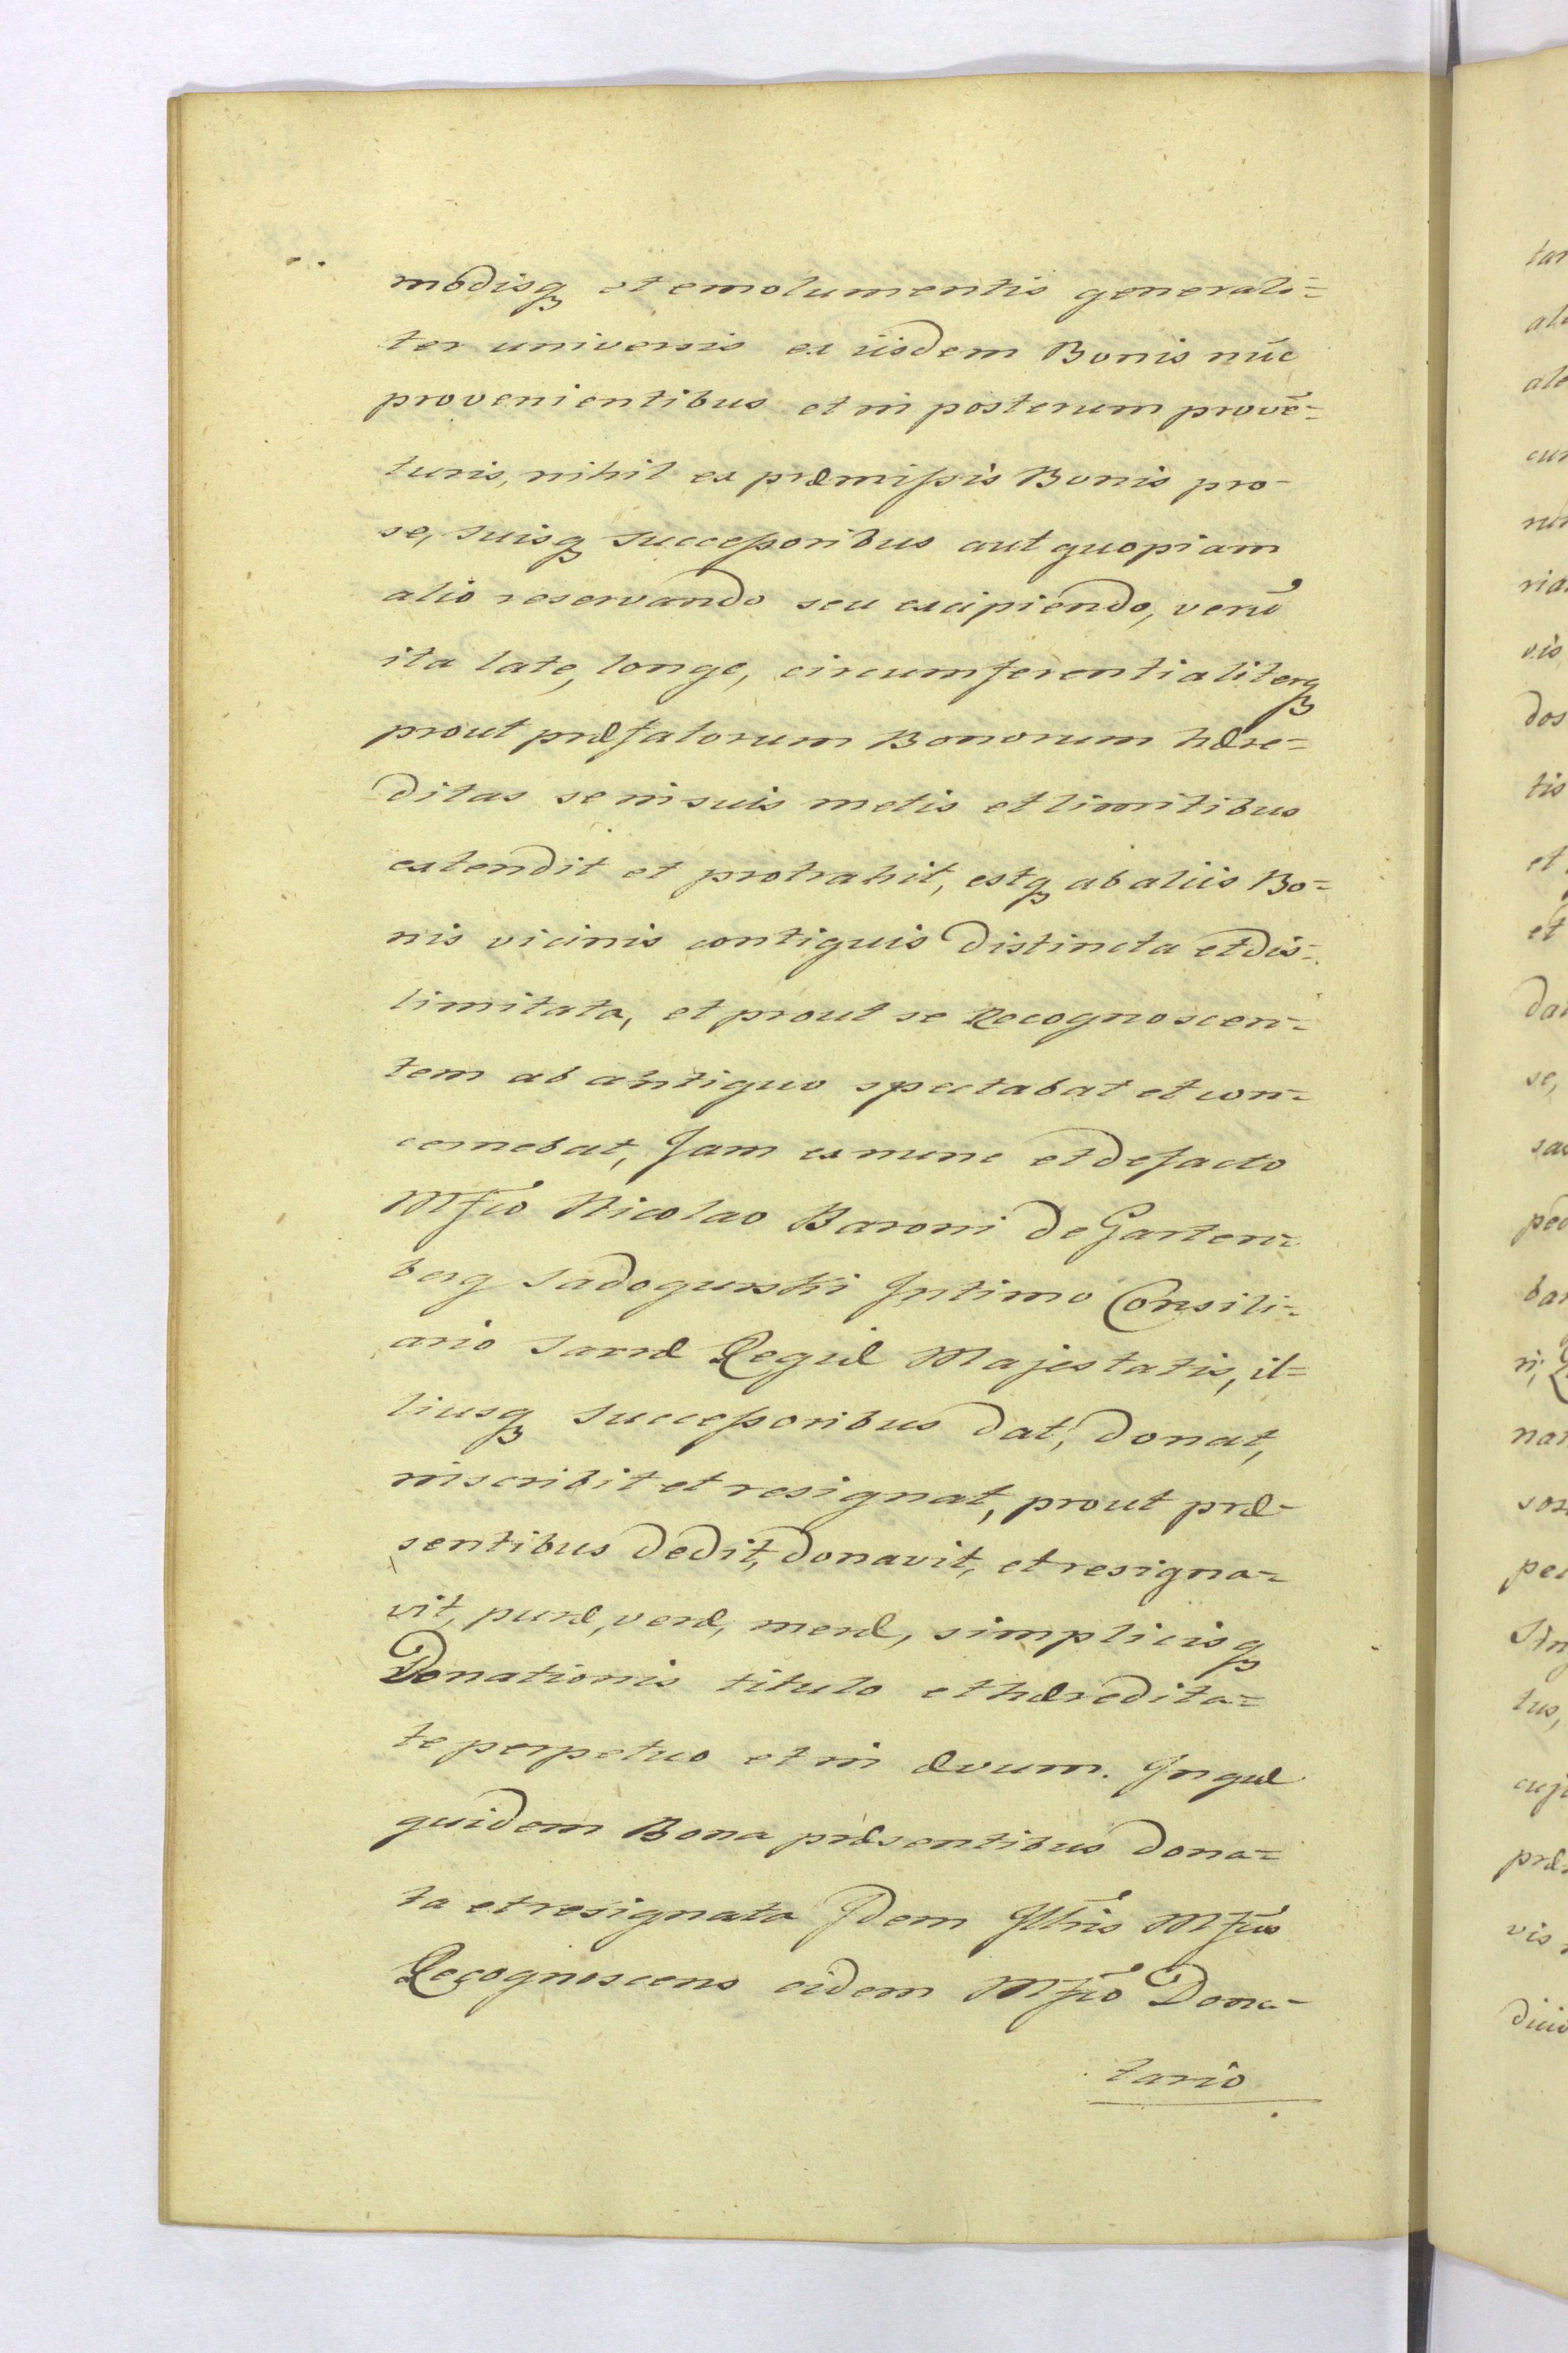 modisq₃ et emolumentis generali=
ter universis ex iisdem Bonis nūc
provenientibus et in posterum provē=
turis, nihil ex præmiſsis Bonis pro-
se, suisq₃ succeſsoribus aut quopiam
alio reservando seu excipiendo, verū
ita late, longe, circumferentialiterq₃
prout præfatorum Bonorum hære=
ditas se in suis metis et limitibus
extendit et protrahit, estq₃ ab aliis Bo=
nis vicinis contiguis distincta et dis=
limitata, et prout se Recognoscen=
tem ab antiquo spectabat et con=
cernebat, Jam ex nunc et de facto
Mfco Nicolao Baroni de Garten=
berg Sadogurski Intimo Consili=
ario Sacræ Regiæ Majestatis, il=
liusq₃ succeſsoribus dat, donat,
inscribit et resignat, prout præ-
sentibus dedit, donavit, et resigna=
vit, puræ, veræ, meræ, simplicisq₃
Donationis titulo et hæredita=
te perpetuo et in ævum. In quæ
quidem Bona præsentibus dona=
ta et resignata Idem Illris Mfcus
Recognoscens eidem Mfco Dona-
tario
tar
vis
dos
tis
et
et
se,
vis